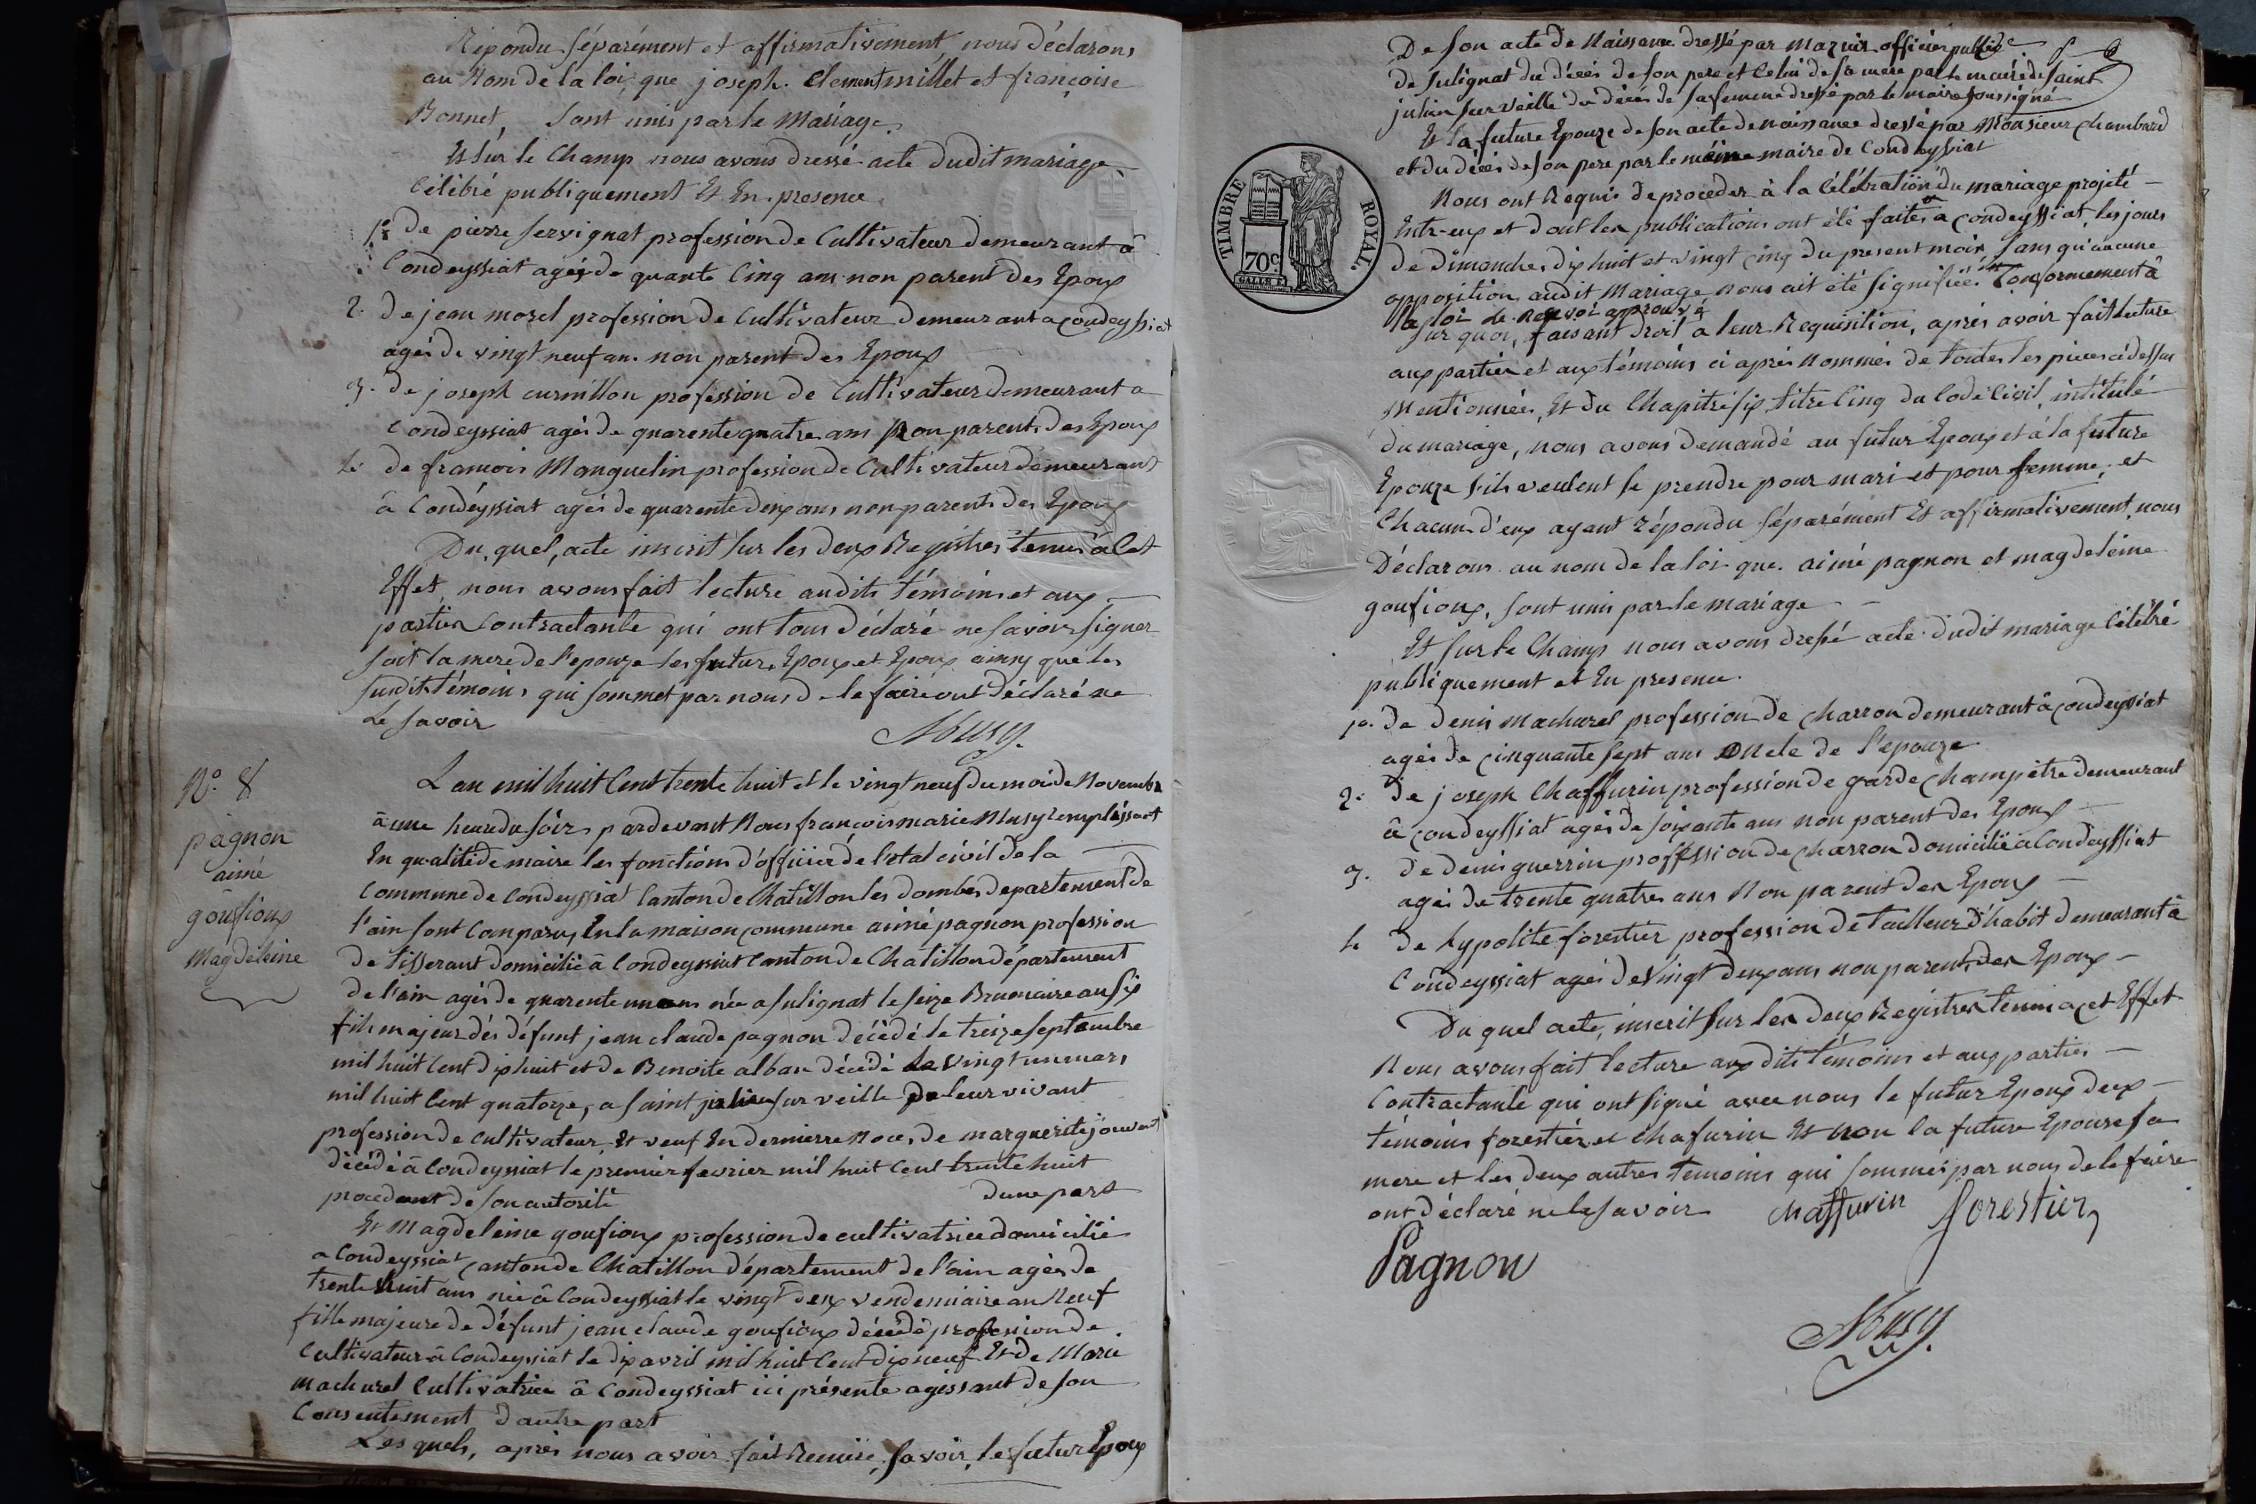 Répondu séparément et affirmativement, nous déclarons
au Nom de la loi, que joseph. Clement millet et françoise
Bonnet, sont unis par le Mariage.
Et sur le Champ nous avons dressé acte dudit mariage
Célébré publiquement Et En presence
1° De pierre servignat profession de Cultivateur demeurant â
Condeyssiat agés de quarente Cinq ans non parent des Epoux
2. De jean morel profession de Cultivateur Demeurant a condeyssiat
agés de vingt neuf ans non parent des Epoux
3. De joseph curnillon profession de Cultivateur demeurant a
Condeyssiat agés de quarente quatre ans Non parent des Epoux
4. de francois Manguelin profession de Cultivateur demeurant
â Condéyssiat agés de quarente deux ans non parent des Epoux
Du quel, acte inscrit sur les deux Registres tenus â Cet
Effet, nous avons fait lecture audits témoins et aux
parties Contractante qui ont tous Déclaré ne savoir signer
soit la mere de l'epouze les futurs Epoux et Epoux ainsy que les
susdits témoins qui sommet par nous de le faire ont déclaré ne
Le savoir
Musy.
N.° 8
pagnon
aimé
&
goufioux
Magdeleine
L'an mil huit Cent trente huit et le vingt neuf du moi de Novembre
â une heure du soir, pardevant Nous francois marie Musy remplissant
En qualité de maire les fonctions d'officier de l'etat civil de la
Commune de Condeyssiat Canton de Chatillon les dombes departement de
l'ain sont Comparus, En la maison commune aimé pagnon profession
de tisserant domicilié â Condeyssiat Canton de Chatillon département
de l'ain agés de quarente un ans née a sulignat le seize Brumaire an six
fils majeur dés défunt jean claude pagnon décédé le treize septembre
mil huit Cent dix huit et de Benoite alban décédé le vingt un mars
mil huit Cent quatorze, a saint julien sur veille de leur vivant
profession de cultivateur, Et veuf En dernierre Noces de marguerite jouvent
décédé â Condeyssiat le premier fevrier mil huit Cent trente huit
procedant de son autorité dune part
Et Magdeleine goufioux profession de cultivatrice domicilié
a Condeyssiat canton de Chatillon département de l'ain agés de
trente huit ans née â Condeyssiat le vingt deux vendemiaire an Neuf
fille majeure de défunt jean claude goufioux décédé profession de
Cultivateur â Condeyssiat le dix avril mil huit Cent dix neuf Et de Marie
machurel Cultivatrice â Condeyssiat ici présente agissant de son
Consentement d'autre part
Lesquels, après nous avoir fait Remise, savoir, le futur Epoux
De son acte de Naissance dressé par Mazuir officier public
de sulignat du décés de son pere et Celui de sa mere par le maire de saint
julien sur veille du décés de sa femme dressé par le maire soussigné
Et la future Epouze de son acte de naissance dressé par Monsieur chambard
et du décés de son pere par le même maire de Condeyssiat
Nous ont Requis de procéder à la Célébration du mariage projeté
Entr-eux et dont les publications ont été faites a condeyssiat les jours
de Dimanches dix huit et vingt cinq du present mois sans qu'aucune
opposition audit Mariage nous ait été signifiée. Conformement â
la loi
TIMBRE ROYAL.
70c
sur quoi, faisant droit à leur Requisition, après avoir fait lecture
aux parties et aux témoins ci après Nommés de toutes les pieces ci dessus
Mentionnées, Et du Chapitre six, titre Cinq du Code Civil, intitulé
du mariage, nous avons demandé au futur Epoux et à la future
Epouze s'ils veulent se prendre pour mari et pour femme; et
Chacun d'eux ayant répondu séparément Et affirmativement, nous
Déclarons au nom de la loi que aimé pagnon et magdeleine
goufioux, sont unis par le mariage
Et sur le Champ nous avons dressé acte dudit mariage Célébré
publiquement et En presence.
1°. De denis Machurel profession de Charron demeurant â condeyssiat
agés de cinquante sept ans oncle de l'epouze
2. De joseph Chaffurin profession de garde champêtre demeurant
â condeyssiat agés de soixante ans non parent des Epoux
3. de denis guerrin profession de Charron domicilié a Condeyssiat
agés de trente quatre ans Non parent des Epoux
4 de hypolite forestier profession de tailleur d'habit demeurant â
Condeyssiat agés de vingt deux ans non parent des Epoux
Du quel acte, inscrit sur les deux Registres tenus a cet Effet
Nous avons fait lecture aux dits témoins et aux parties
Contractante qui ont signé avec nous le futur Epoux deux
témoins forestier et Chafurin Et non la future Epouse sa
mere et les deux autres temoins qui sommés par nous de le faire
ont déclaré ne le savoir chaffurin forestier
Pagnon
Musy.